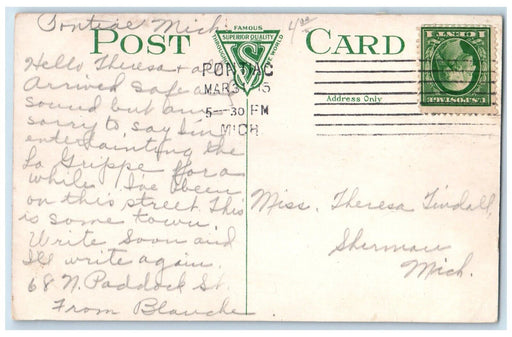 Pontiac Mich.
4.00
POST CARD
FAMOUS
SUPERIOR QUALITY
THROUGHOUT THE WORLD
S
Hello Theresa & all
Arrived safe and
sound but am
sorry to say I'm
entertainting the
La Grippe for a
while. I've been
on this street. This
is some town.
Write soon and
I'll write again.
68 N. Paddock St.
From Blanche
PONTIAC
MAR 3
5-30 PM
MICH
Address Only
U.S. POSTAGE
1 CENT 1
Miss. Theresa Tindall,
Sherman
Mich.